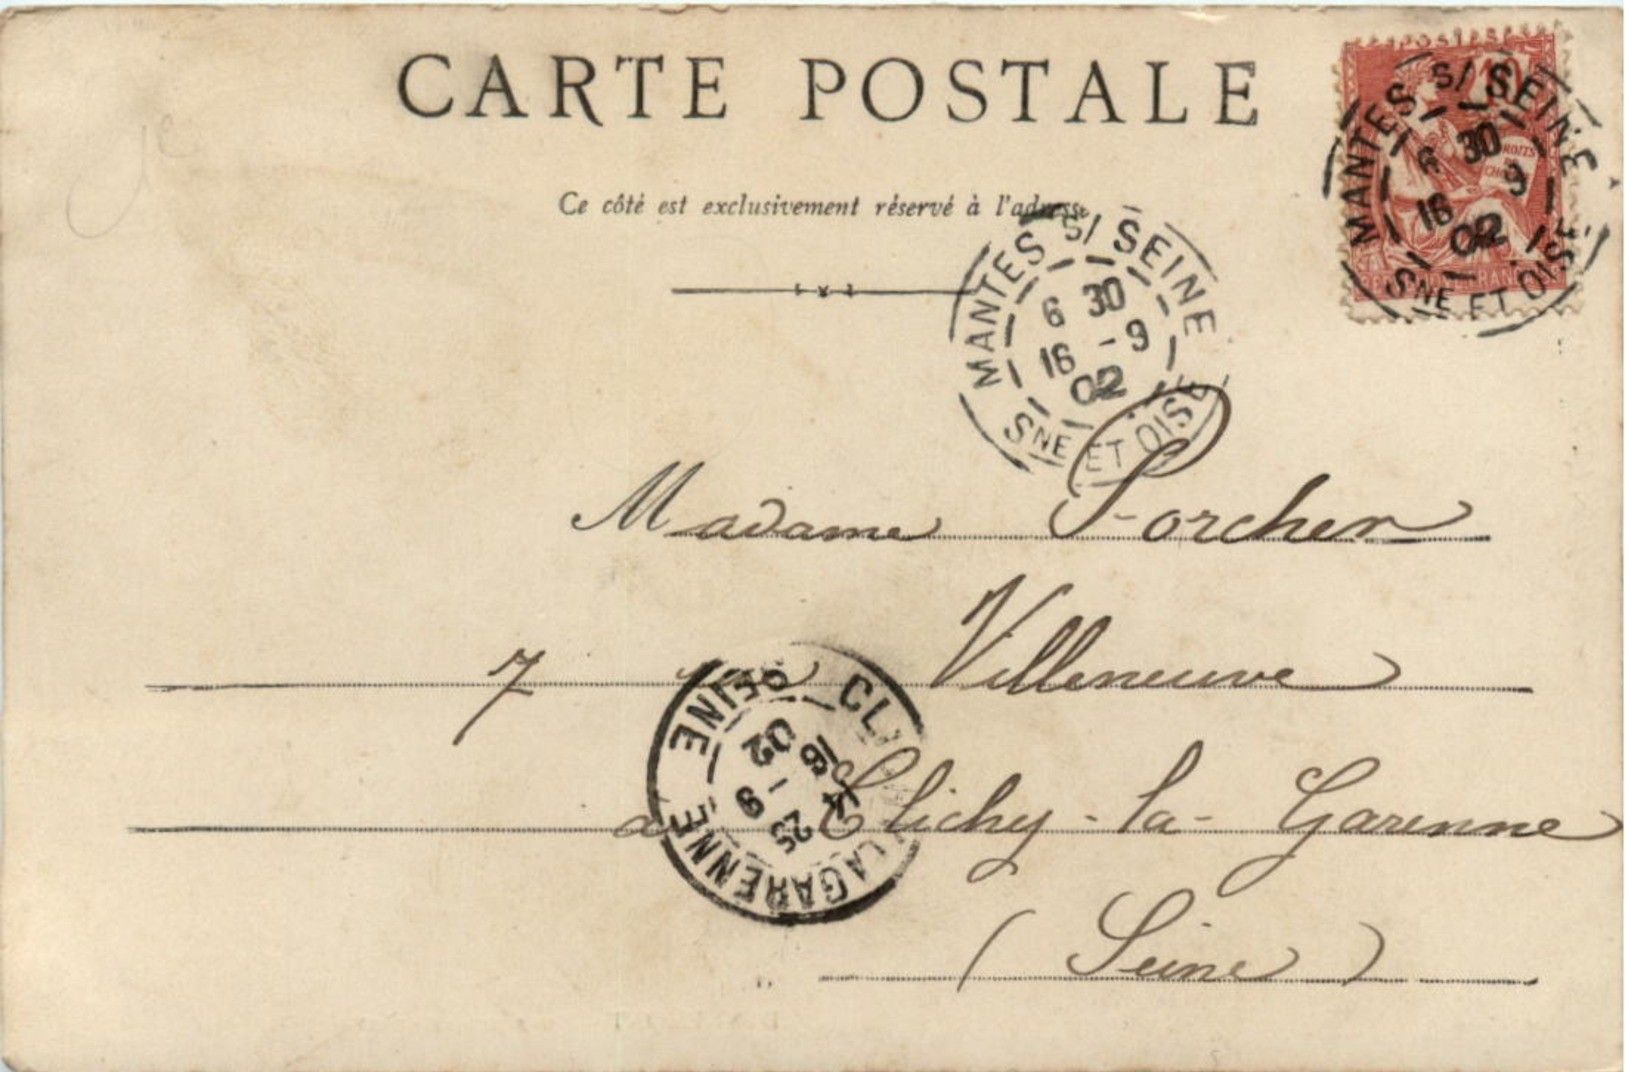 CARTE POSTALE
Ce côté est exclusivement réservé à l'adresse
10
MANTES S/ SEINE
6 30
16 9
02
SNE ET OISE
MANTES S/ SEINE
6 30
16 - 9
02
SNE ET OISE
Madame Porcher
7 Villeneuve
à Clichy-la-Garenne
(Seine)
LA GARENNE
SEINE
16 - 9
02